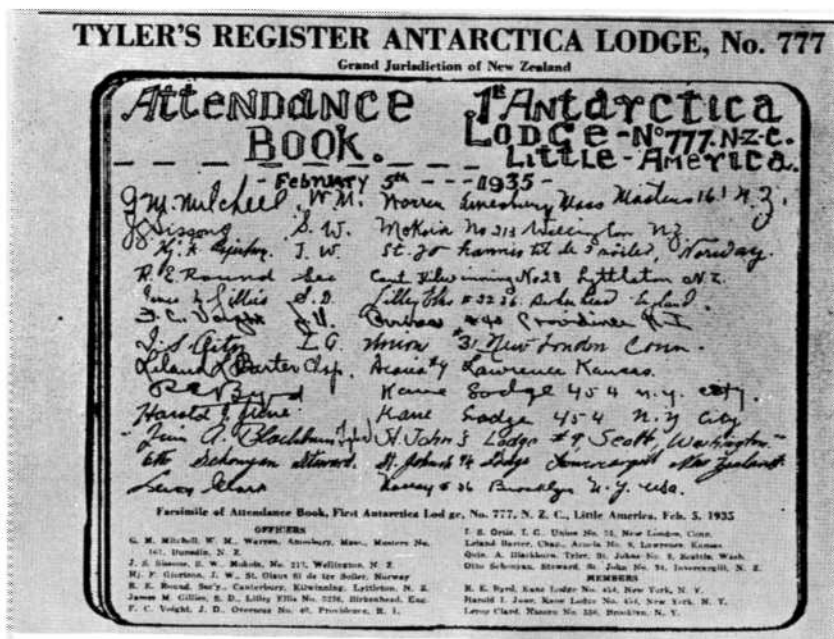 TYLER'S REGISTER ANTARCTICA LODGE, No. 777
Grand Jurisdiction of New Zealand
Attendance Book.
1st Antarctica Lodge - No 777. N-Z-C. Little - America.
- February 5th - - - 1935 -
G M. Mitchell, W. M. Warren Amesbury Mass Masters 161 N. Z.
J Sisson S. W. Mokoia No 213 Wellington NZ
J. W. St. Norway.
R. E. Round Sec Cant. Kilwinning No 28 Lyttleton N. Z.
S. D. England.
F. C. Voight #40 Providence R I
I. G. Union #31 New London Conn.
Leland L Barter Chp. Acacia #9 Lawrence Kansas.
R E Byrd Kane Lodge 454 N.Y. City
Harold I June. Kane Lodge 454 N. Y City
A. Blackburn Tyler St. John's Lodge #9 Washington
Steward. St. Johns Lodge New Zealand
Leroy Clark Brooklyn N. Y. USA.
Facsimile of Attendance Book, First Antarctica Lodge, No. 777, N. Z. C., Little America, Feb. 5, 1935
OFFICERS
G. M. Mitchell, W. M., Warren, Amesbury, Mass., Masters No.
161, Dunedin, N. Z.
J. S. Sissons, S. W., Mokoia, No. 213, Wellington, N. Z.
J. W., St. Norway
R. E. Round, Sec'y., Canterbury, Kilwinning, Lyttleton, N. Z.
James M. Gillies, S. D., Birkenhead, Eng.
F. C. Voight, J. D., Overseas No. 40, Providence, R. I.
I. G., Union No. 31, New London, Conn.
Leland Barter, Chap., Acacia No. 9, Lawrence, Kansas
Quin. A. Blackburn, Tyler, St. Johns No. 9, Seattle, Wash.
Otto Steward, St. John No. Invercargill, N. Z.
MEMBERS
R. E. Byrd, Kane Lodge No. 454, New York, N. Y.
Harold I. June, Kane Lodge No. 454, New York, N. Y.
Leroy Brooklyn, N. Y.